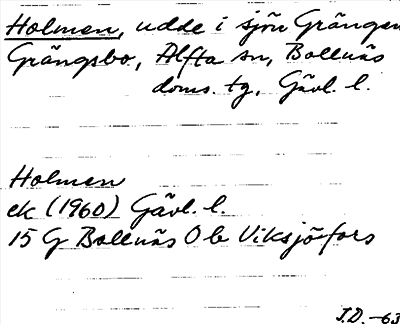 Holmen, udde i sjön Grängen
Grängsbo, Alfta sn, Bollnäs
doms. tg, Gävl. l.
Holmen
ek (1960) Gävl. l.
15 G Bollnäs O b Viksjöfors
J.D. -63